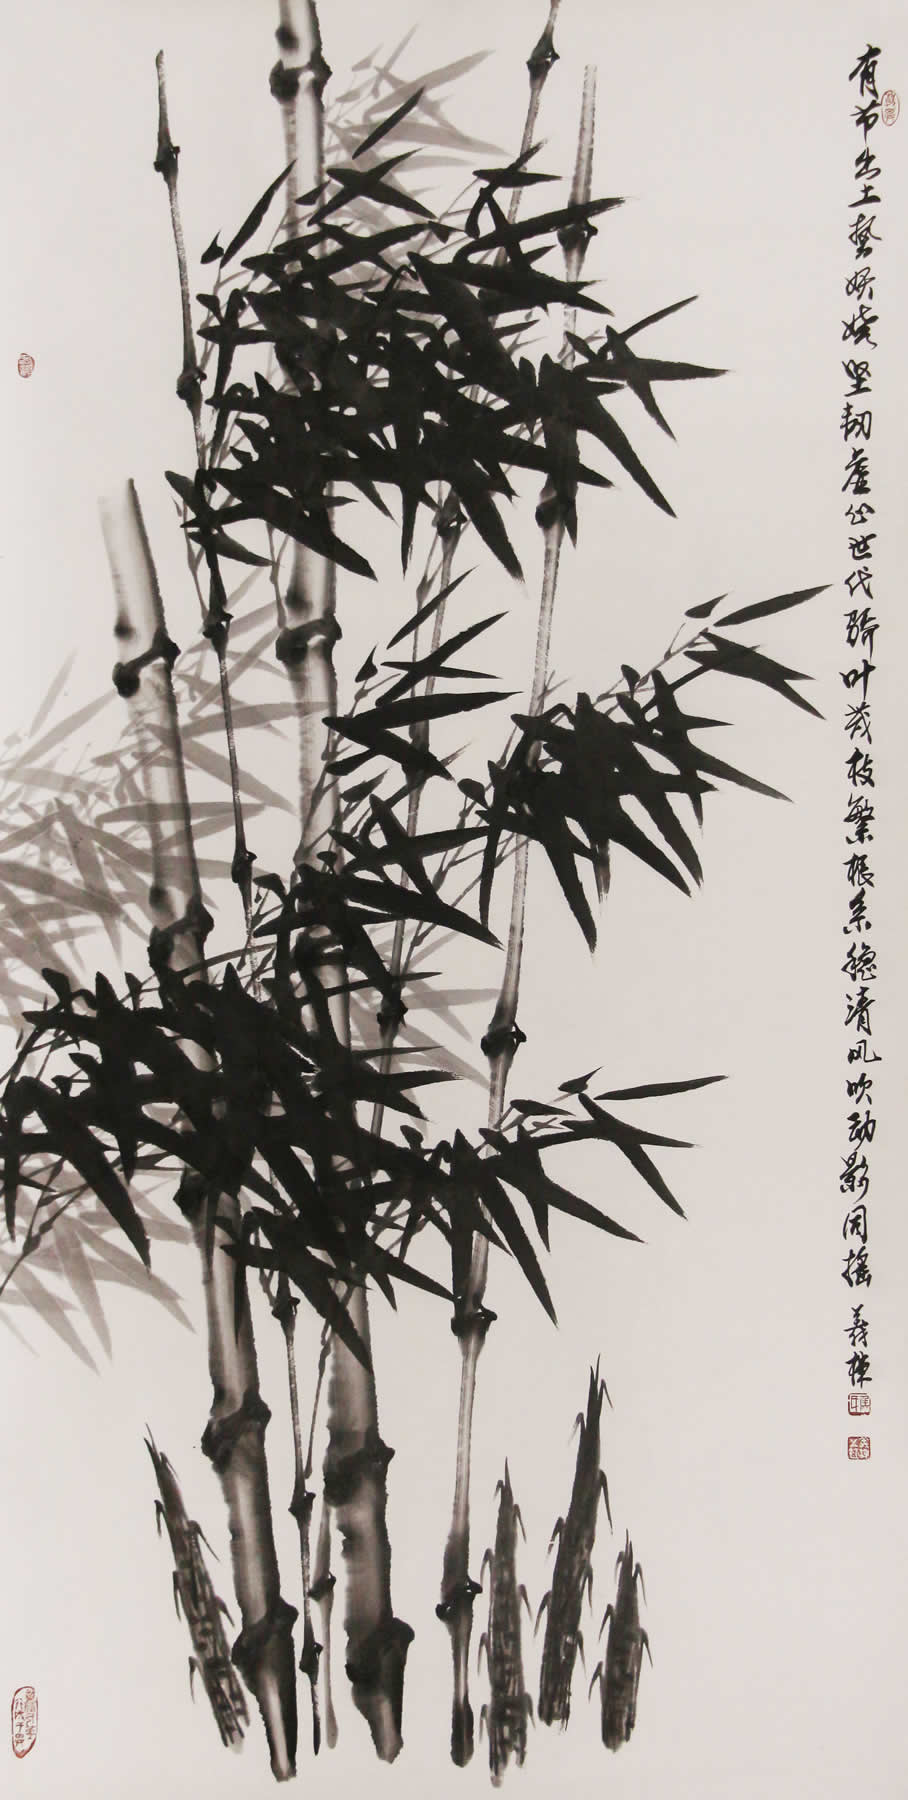 有节出土势妖娆坚韧虚心世代骄叶茂枝繁根系稳清风吹动影同摇 义栋